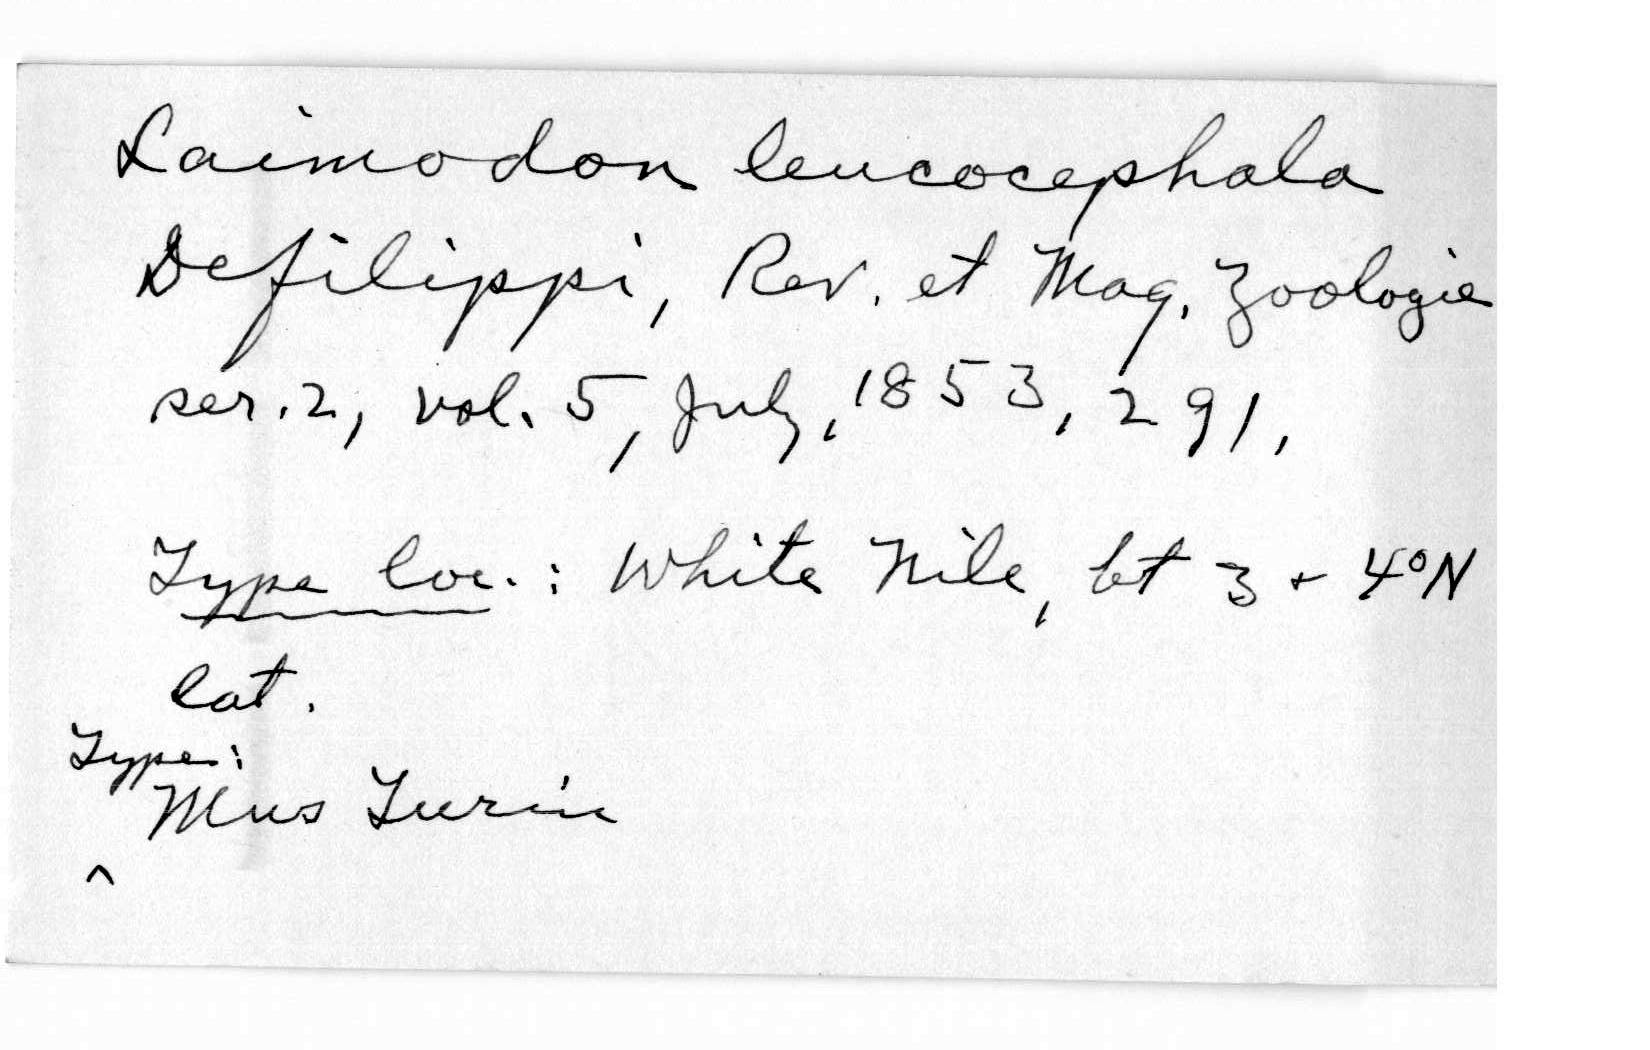 Laimodon leucocephala
Defilippi, Rev. et Mag. Zoologie
ser. 2, vol. 5, July, 1853, 291,
Type loc.: White Nile, bt 3 + 4°N
lat.
Type:
Mus Turin
^